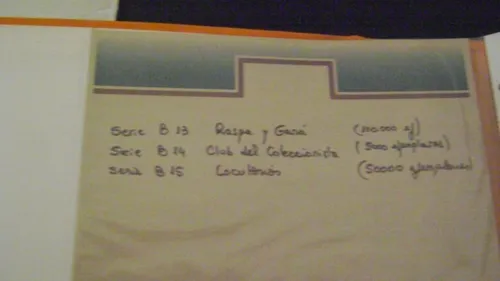 Serie B 13 Raspa y Gana (200.000 ej)
Serie B 14 Club del Coleccionista (5000 ejemplares)
Serie B 15 (50000 ejemplares)